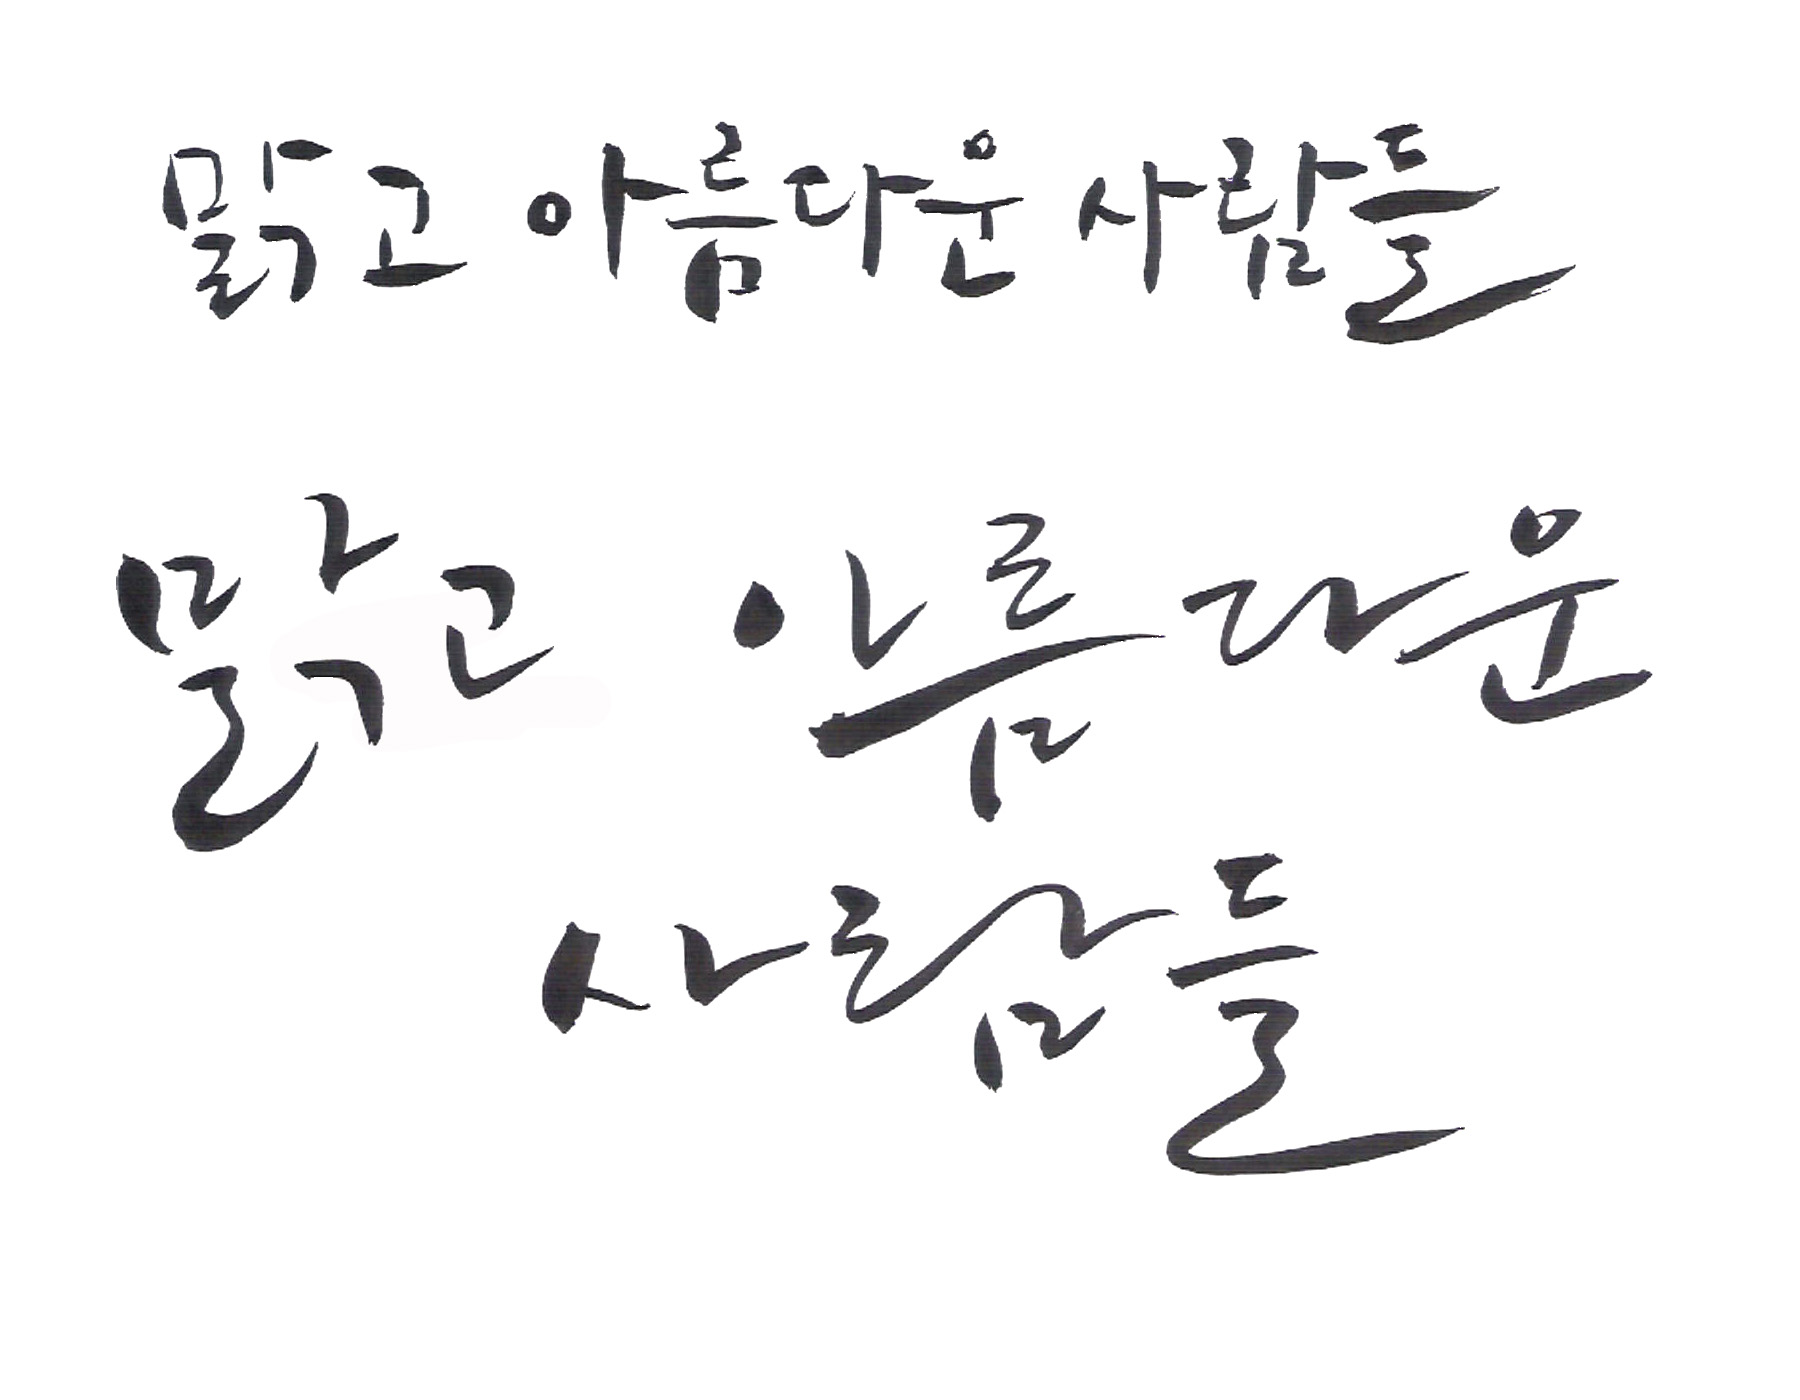 맑고 아름다운 사람들
맑고 아름다운
사람들